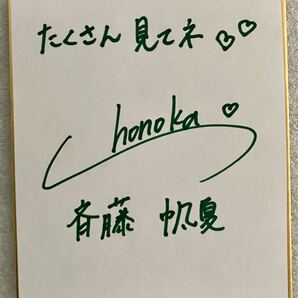 たくさん 見てネ♡♡
honoka♡
斉藤 帆夏